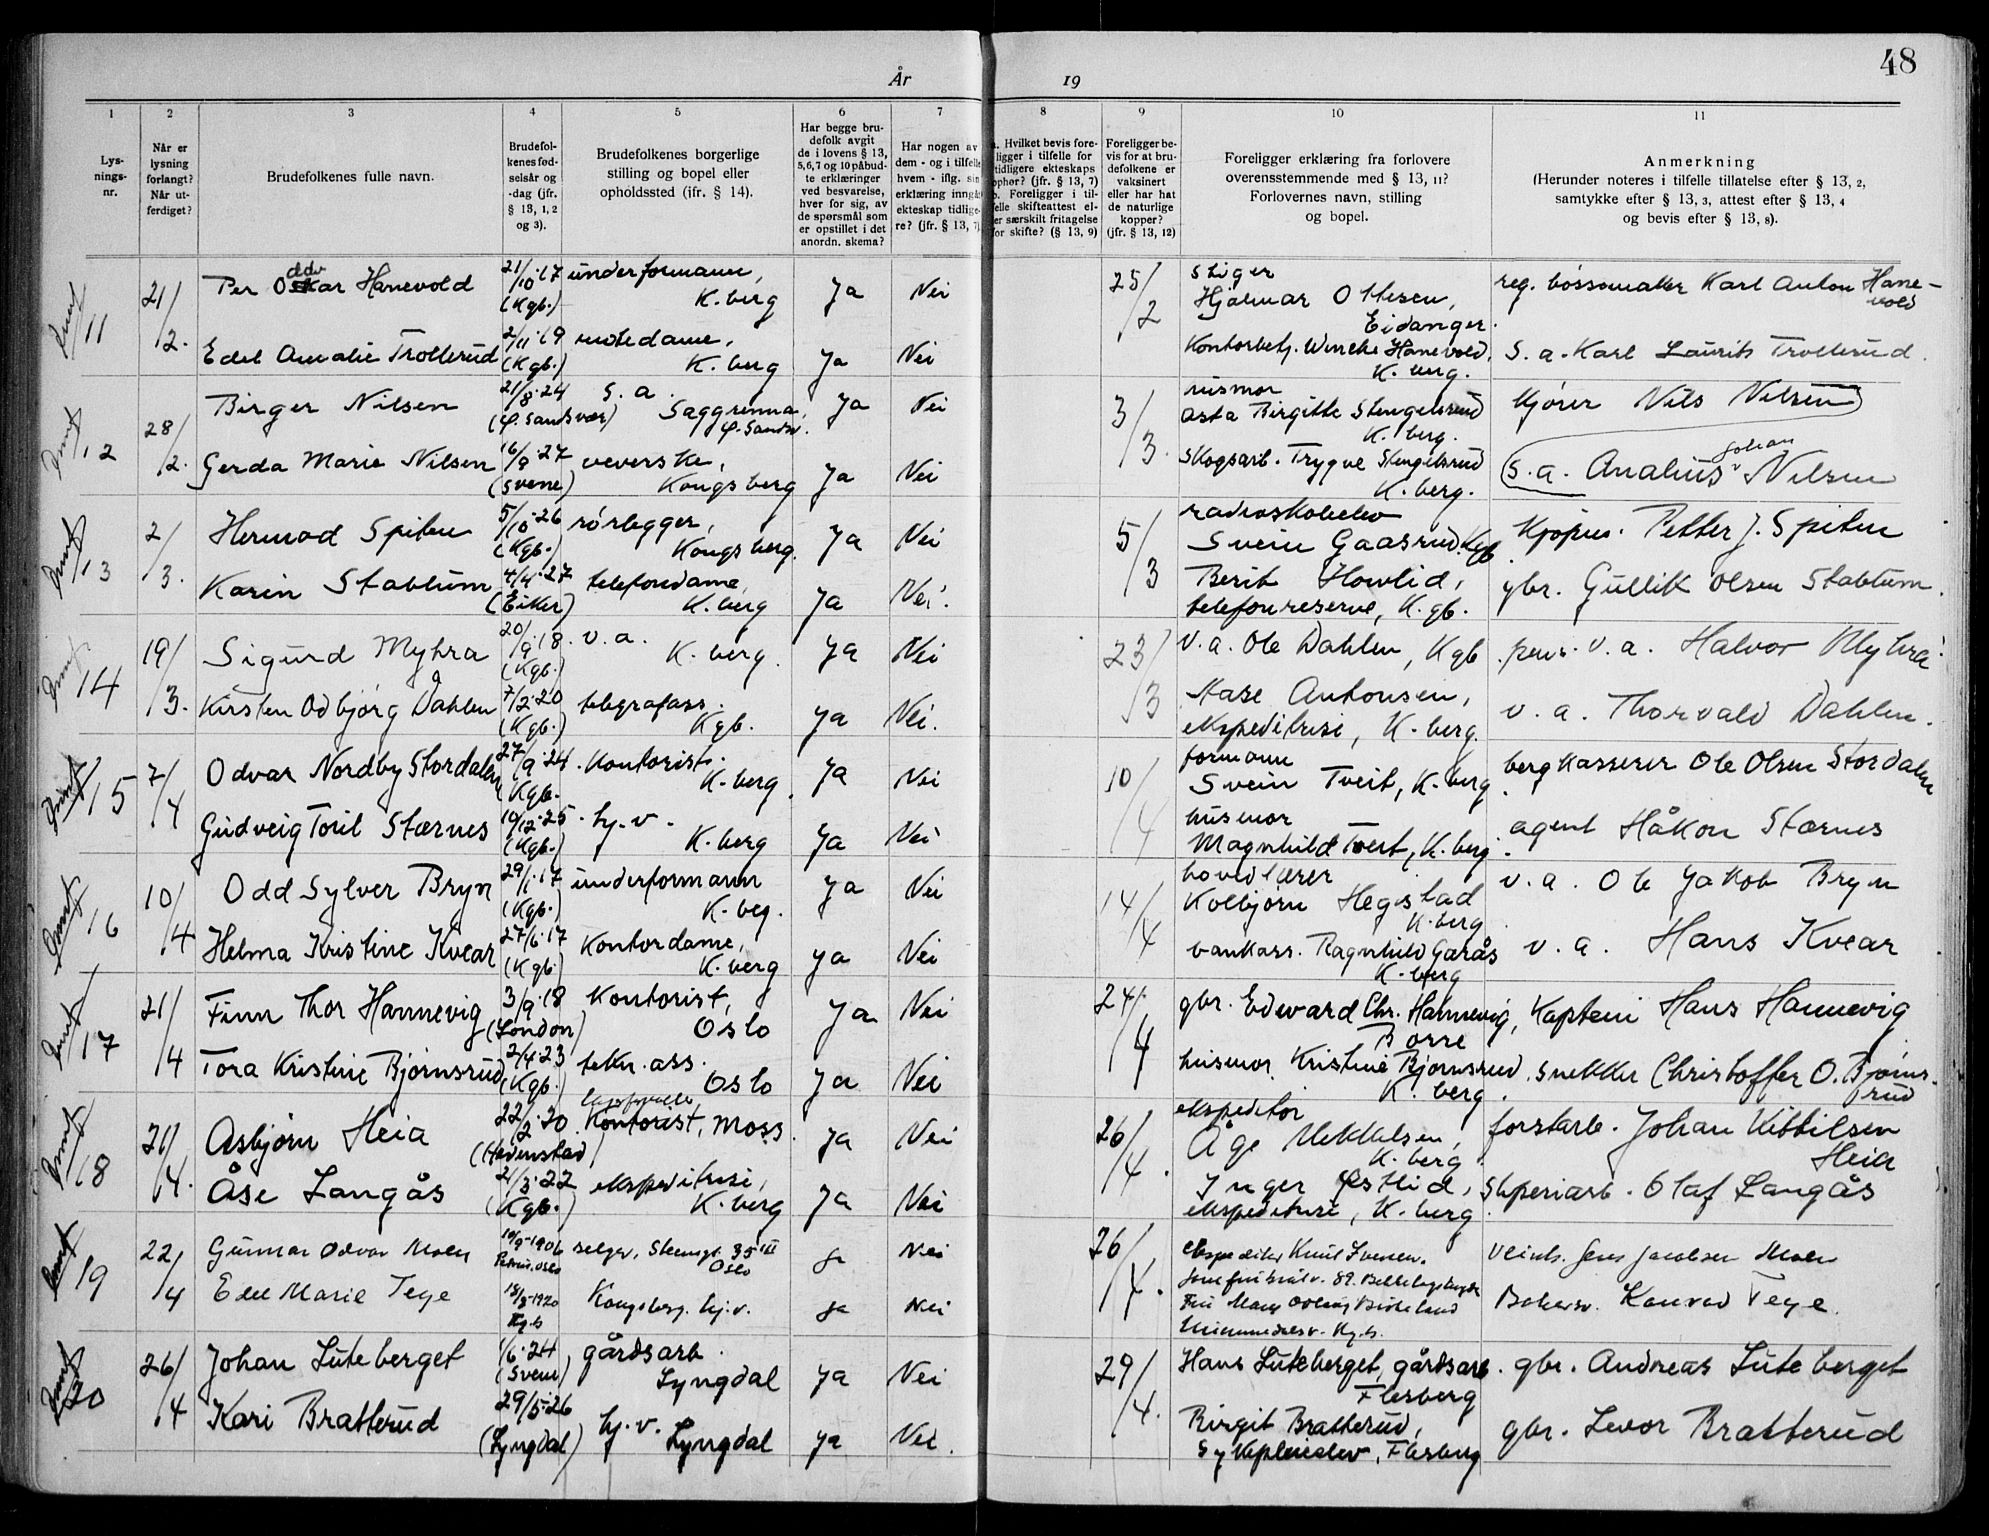 48
År 19
1 2 3 4 5 6 7 8 9 10 11
Lys-
nings-
nr.
Når er
lysning
forlangt?
Når ut-
ferdiget?
Brudefolkenes fulle navn.
Brudefol-
kenes fød-
selsår og
-dag (jfr.
§ 13, 1, 2
og 3).
Brudefolkenes borgerlige
stilling og bopel eller
opholdssted (ifr. § 14).
Har begge bru-
defolk avgit
de i lovens § 13,
5,6,7 og 10 påbud-
te erklæringer
ved besvarelse,
hver for sig, av
de spørsmål som
er opstillet i det
anordn. skema?
Har nogen av
dem - og i tilfelle
hvem - iflg. sin
erklæring inngåt
ekteskap tidlige-
re? (jfr. § 13, 7)
a. Hvilket bevis fore-
ligger i tilfelle for
tidligere ekteskaps
ophør? (jfr. § 13, 7)
b. Foreligger i til-
felle skifteattest el-
ler særskilt fritagelse
for skifte? (§ 13, 9)
Foreligger be-
vis for at bru-
defolkene er
vaksinert
eller har hat
de naturlige
kopper?
(jfr. § 13, 12)
Foreligger erklæring fra forlovere
overensstemmende med § 13, 11?
Forlovernes navn, stilling
og bopel.
Anmerkning
(Herunder noteres i tilfelle tillatelse efter § 13, 2,
samtykke efter § 13, 3, attest efter § 13, 4
og bevis efter § 13, 8).
11 21/2. Per Oddvar Hanevold 21/10.17 (Kgb.) underformann, K.berg Ja Nei 25/2 stiger Hjalmar Ottesen, Eidanger. reg. bøssemaker Karl Anton Hanevold
Edel Amalie Trollerud 2/11.19 (Kgb.) motedame, K.berg Ja Nei Kontorbetj. Wenche Hanevold, K.berg. s.a. Karl Laurits Trollerud.
12 28/2. Birger Nilsen 21/8.24 (Ø.Sandsvær) s.a. Saggrenna, Ø.Sandsv. Ja Nei 3/3. husmor Asta Birgitte Stengelsrud K.berg. kjører Nils Nilsen
Gerda Marie Nilsen 16/9.27 (Svene) veverske, Kongsberg Ja Nei skogsarb. Trygve Stengelsrud K.berg. s.a. Analius Johan Nilsen
13 2/3. Hermod Spiten 5/10.26 (Kgb.) rørlegger, Kongsberg. Ja Nei 5/3 radioskoleelev Svein Gaasrud, Kgb. Kjøpm. Petter J. Spiten
Karin Stablum 4/4.27 (Eiker) telefondame, K.berg Ja Nei. Berit Howlid, telefonreserve, K.gb. gbr. Gullik Olsen Stablum.
14 19/3. Sigurd Myhra 20/9.18 (Kgb.) v.a. K.berg. Ja Nei 23/3 v.a. Ole Dahlen, Kgb. pens. v.a. Halvor Myhra
Kirsten Odbjørg Dahlen 7/2.20 (Kgb.) telegrafass. Kgb. Ja Nei. Aase Antonsen, ekspeditrise, K.berg. v.a. Thorvald Dahlen.
15 7/4 Odvar Nordby Stordalen 27/9.24 Kgb. Kontorist. K.berg. Ja Nei 10/4 formann Svein Tveit, K.berg. bergkasserer Ole Olsen Stordalen
Gudveig Toril Stærnes 10/12.25 (Kgb.) hj.v. K.berg Ja Nei husmor Magnhild Tveit, K.berg. agent Håkon Stærnes
16 10/4 Odd Sylver Bryn 29/1.17 (Kgb.) underformann K.beg. Ja Nei 14/4 hovedlærer Kolbjørn Hegstad K.berg v.a. Ole Jakob Bryn
Helma Kristine Kvear 27/6.17 (Kgb.) Kontordame, K.berg Ja Nei vankass. Ragnhild Garås K.berg v.a. Hans Kvear
17 21/4 Finn Thor Hannevig 3/9.18 (London) Kontorist, Oslo Ja Nei 24/4 gbr. Edward Chr. Hannevig, Borre Kaptein Hans Hannevig
Tora Kristine Bjørnsrud 2/4.23 (Kgb.) tekn.ass. Oslo Ja Nei husmor Kristine Bjørnsrud K.berg. snekker Christoffer O. Bjørnsrud
18 21/4. Asbjørn Heia 22/2.20 (Hedenstad) Kontorist, Moss. Ja Nei 26/4. ekspeditør Åge Mikkelsen, K.berg forstarb. Johan Kittilsen Heia
Åse Langås 21/3.22 (Kgb.) ekspeditrise, K.berg Ja Nei Inger Østlid, ekspeditrise, K.berg. sliperiarb. Olaf Langås
19 22/4 Gunnar Odvar Moen 10/9-1906 Oslo selger, Steensgt. 35 III Oslo Ja Nei 26/4. ekspeditør Knut Iversen. Jens Jacobsen Moen
Edel Marie Tege 18/8-1920 Kg.b Kongsberg. hj.v. Ja Nei Kg.b. Konrad Tege.
20 26/4 Johan Luteberget 1/6.24 (Svene) gårdsarb. Lyngdal Ja Nei 29/4. Hans Luteberget, gårdsarb. Flesberg gbr. Andreas Luteberget
Kari Bratterud 29/5.26 (Lyngdal) hj.v. Lyngdal Ja Nei. Birgit Bratterud, Flesberg gbr. Levor Bratterud